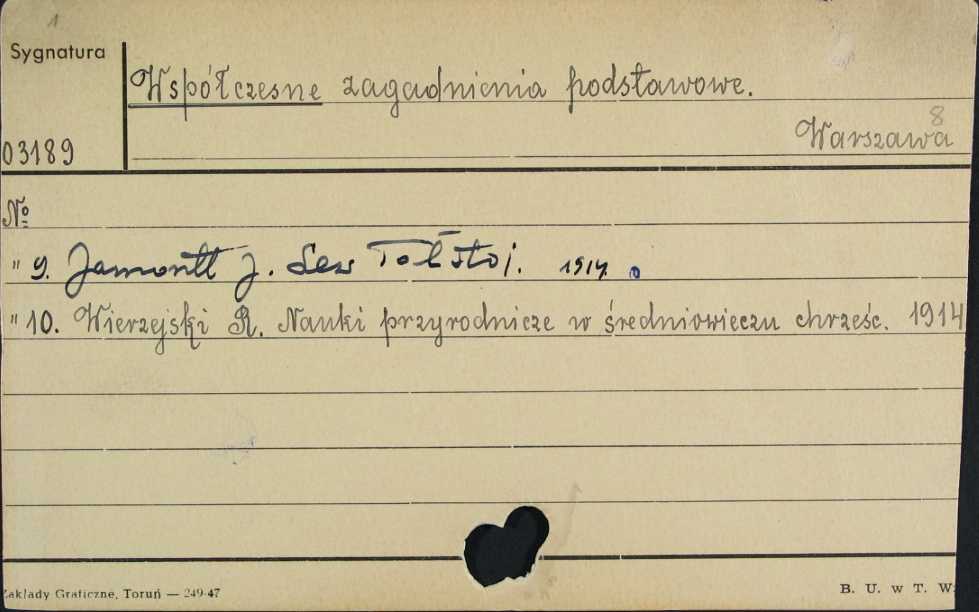 1
Sygnatura
Współczesne zagadnienia podstawowe.
8
Warszawa
03189
№
" 9. Jamontt J. Lew Tołstoj. 1914.
" 10. Wierzejski R. Nauki przyrodnicze w średniowieczu chrześc. 1914
Zakłady Graficzne, Toruń — 249-47
B. U. w T. W.